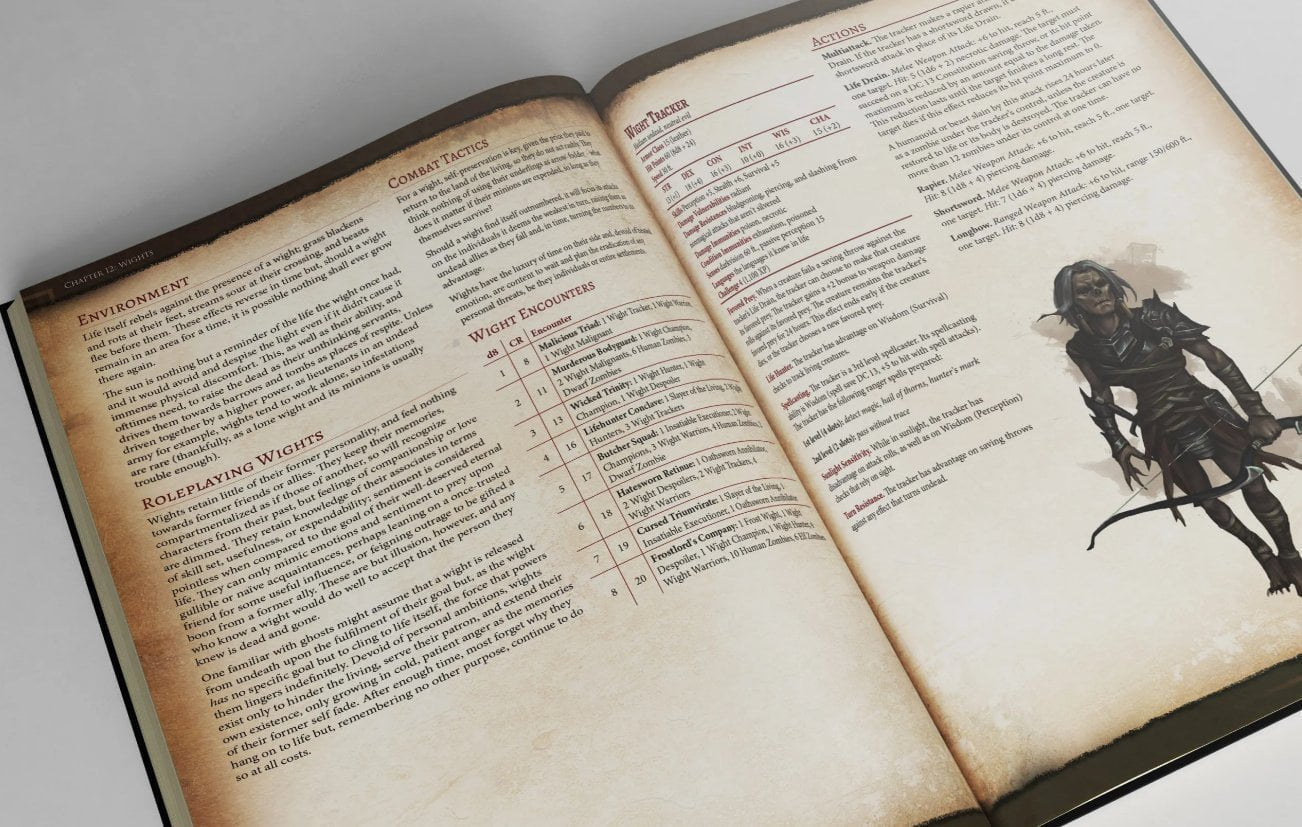 CHAPTER 12: WIGHTS
ENVIRONMENT
Life itself rebels against the presence of a wight; grass blackens
and rots at their feet, streams sour at their crossing, and beasts
flee before them. These effects reverse in time but, should a wight
remain in an area for a time, it is possible nothing shall ever grow
there again.
The sun is nothing but a reminder of the life the wight once had,
and it would avoid and despise the light even if it didn't cause it
immense physical discomfort. This, as well as their ability, and
ofttimes need, to raise the dead as their unthinking servants,
drives them towards barrows and tombs as places of respite. Unless
driven together by a higher power, as lieutenants in an undead
army for example, wights tend to work alone, so infestations
are rare (thankfully, as a lone wight and its minions is usually
trouble enough).
ROLEPLAYING WIGHTS
Wights retain little of their former personality, and feel nothing
towards former friends or allies. They keep their memories,
compartmentalized as if those of another, so will recognize
characters from their past, but feelings of companionship or love
are dimmed. They retain knowledge of their associates in terms
of skill set, usefulness, or expendability; sentiment is considered
pointless when compared to the goal of their well-deserved eternal
life. They can only mimic emotions and sentiment to prey upon
gullible or naïve acquaintances, perhaps leaning on a once-trusted
friend for some useful influence, or feigning outrage to be gifted a
boon from a former ally. These are but illusion, however, and any
who know a wight would do well to accept that the person they
knew is dead and gone.
One familiar with ghosts might assume that a wight is released
from undeath upon the fulfilment of their goal but, as the wight
has no specific goal but to cling to life itself, the force that powers
them lingers indefinitely. Devoid of personal ambitions, wights
exist only to hinder the living, serve their patron, and extend their
own existence, only growing in cold, patient anger as the memories
of their former self fade. After enough time, most forget why they
hang on to life but, remembering no other purpose, continue to do
so at all costs.
COMBAT TACTICS
For a wight, self-preservation is key, given the price they paid to
return to the land of the living, so they do not act rashly. They
think nothing of using their underlings as arrow fodder, what
does it matter if their minions are expended, so long as they
themselves survive?
Should a wight find itself outnumbered, it will focus its attacks
on the individuals it deems the weakest in turn, raising them as
undead allies as they fall and, in time, turning the numbers to its
advantage.
Wights have the luxury of time on their side and, devoid of
emotion, are content to wait and plan the eradication of any
personal threats, be they individuals or entire settlements.
WIGHT ENCOUNTERS
d8 CR Encounter
1 8 Malicious Triad: 1 Wight Tracker, 1 Wight Warrior,
1 Wight Malignant
2 11 Murderous Bodyguard: 1 Wight Champion,
2 Wight Malignants, 6 Human Zombies, 3
Dwarf Zombies
3 13 Wicked Trinity: 1 Wight Hunter, 1 Wight
Champion, 1 Wight Despoiler
4 16 Lifehunter Conclave: 1 Slayer of the Living, 2 Wight
Hunters, 3 Wight Trackers
5 17 Butcher Squad: 1 Insatiable Executioner, 2 Wight
Champions, 3 Wight Warriors, 4 Human Zombies, 1
Dwarf Zombie
6 18 Hatesworn Retinue: 1 Oathsworn Annihilator,
2 Wight Despoilers, 2 Wight Trackers, 4
Wight Warriors
7 19 Cursed Triumvirate: 1 Slayer of the Living, 1
Insatiable Executioner, 1 Oathsworn Annihilator
8 20 Frostlord's Company: 1 Frost Wight, 1 Wight
Despoiler, 1 Wight Champion, 1 Wight Hunter, 8
Wight Warriors, 10 Human Zombies, 6 Elf Zombies
WIGHT TRACKER
Medium undead, neutral evil
Armor Class 15 (leather)
Hit Points 60 (8d8 + 24)
Speed 30 ft.
STR DEX CON INT WIS CHA
18 (+4) 16 (+3) 10 (+0) 16 (+3) 15 (+2)
Skills Perception +5, Stealth +6, Survival +5
Damage Vulnerabilities radiant
Damage Resistances bludgeoning, piercing, and slashing from
nonmagical attacks that aren't silvered
Damage Immunities poison, necrotic
Condition Immunities exhaustion, poisoned
Senses darkvision 60 ft., passive perception 15
Languages the languages it knew in life
Challenge 4 (1,100 XP)
Favored Prey. When a creature fails a saving throw against the
tracker's Life Drain, the tracker can choose to make that creature
its favored prey. The tracker gains a +2 bonus to weapon damage
rolls against its favored prey. The creature remains the tracker's
favored prey for 24 hours. This effect ends early if the creature
dies, or the tracker chooses a new favored prey.
Life Hunter. The tracker has advantage on Wisdom (Survival)
checks to track living creatures.
Spellcasting. The tracker is a 3rd level spellcaster. Its spellcasting
ability is Wisdom (spell save DC 13, +5 to hit with spell attacks).
The tracker has the following ranger spells prepared:
1st level (3 slots): detect magic, hail of thorns, hunter's mark
2nd level (2 slots): pass without trace
Sunlight Sensitivity. While in sunlight, the tracker has
disadvantage on attack rolls, as well as on Wisdom (Perception)
checks that rely on sight.
Turn Resistance. The tracker has advantage on saving throws
against any effect that turns undead.
ACTIONS
Multiattack. The tracker makes a rapier
Drain. If the tracker has a shortsword drawn, it
shortsword attack in place of its Life Drain.
Life Drain. Melee Weapon Attack: +6 to hit, reach 5 ft.,
one target. Hit: 5 (1d6 + 2) necrotic damage. The target must
succeed on a DC 13 Constitution saving throw, or its hit point
maximum is reduced by an amount equal to the damage taken.
This reduction lasts until the target finishes a long rest. The
target dies if this effect reduces its hit point maximum to 0.
A humanoid or beast slain by this attack rises 24 hours later
as a zombie under the tracker's control, unless the creature is
restored to life or its body is destroyed. The tracker can have no
more than 12 zombies under its control at one time.
Rapier. Melee Weapon Attack: +6 to hit, reach 5 ft., one target.
Hit: 8 (1d8 + 4) piercing damage.
Shortsword. Melee Weapon Attack: +6 to hit, reach 5 ft.,
one target. Hit: 7 (1d6 + 4) piercing damage.
Longbow. Ranged Weapon Attack: +6 to hit, range 150/600 ft.,
one target. Hit: 8 (1d8 + 4) piercing damage.